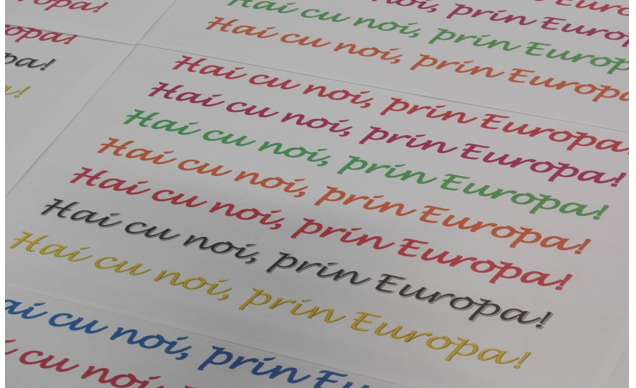 opa!
Hai cu noi, prin Euro
ropa!
Hai cu noi, prin Europ
opa!
Hai cu noi, prin Europa
a!
Hai cu noi, prin Europa!
Hai cu noi, prin Europa!
Hai cu noi, prin Europa!
Hai cu noi, prin Europa!
Hai cu noi, prin Europa!
Hai cu noi, prin Europa!
Hai cu noi, prin Europa!
ai cu noi, prin Eu
cu noi, prin